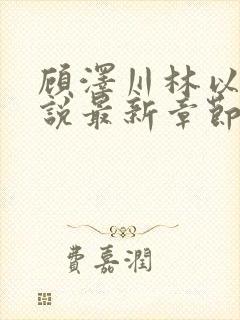 顧澤川林以
說最新章節
費嘉潤